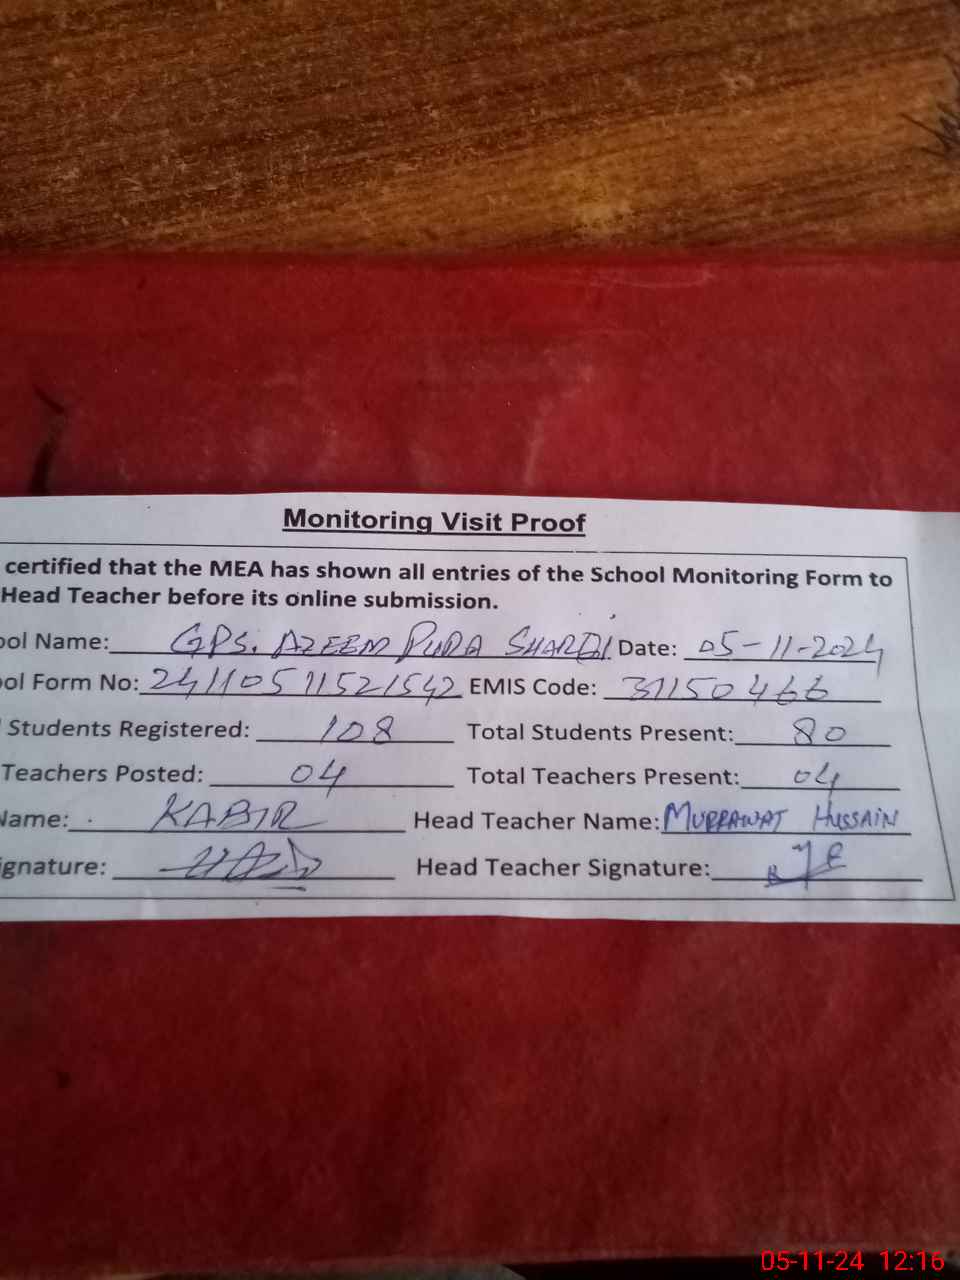 Monitoring Visit Proof
certified that the MEA has shown all entries of the School Monitoring Form to
Head Teacher before its online submission.
ool Name: GPS. AZEEM PURA Date: 05-11-2024
ool Form No: 24110511521542 EMIS Code: 31150466
Students Registered: 108 Total Students Present: 80
Teachers Posted: 04 Total Teachers Present: 04
Name: KABIR Head Teacher Name: MURRAWAT HUSSAIN
ignature: Head Teacher Signature:
05-11-24 12:16